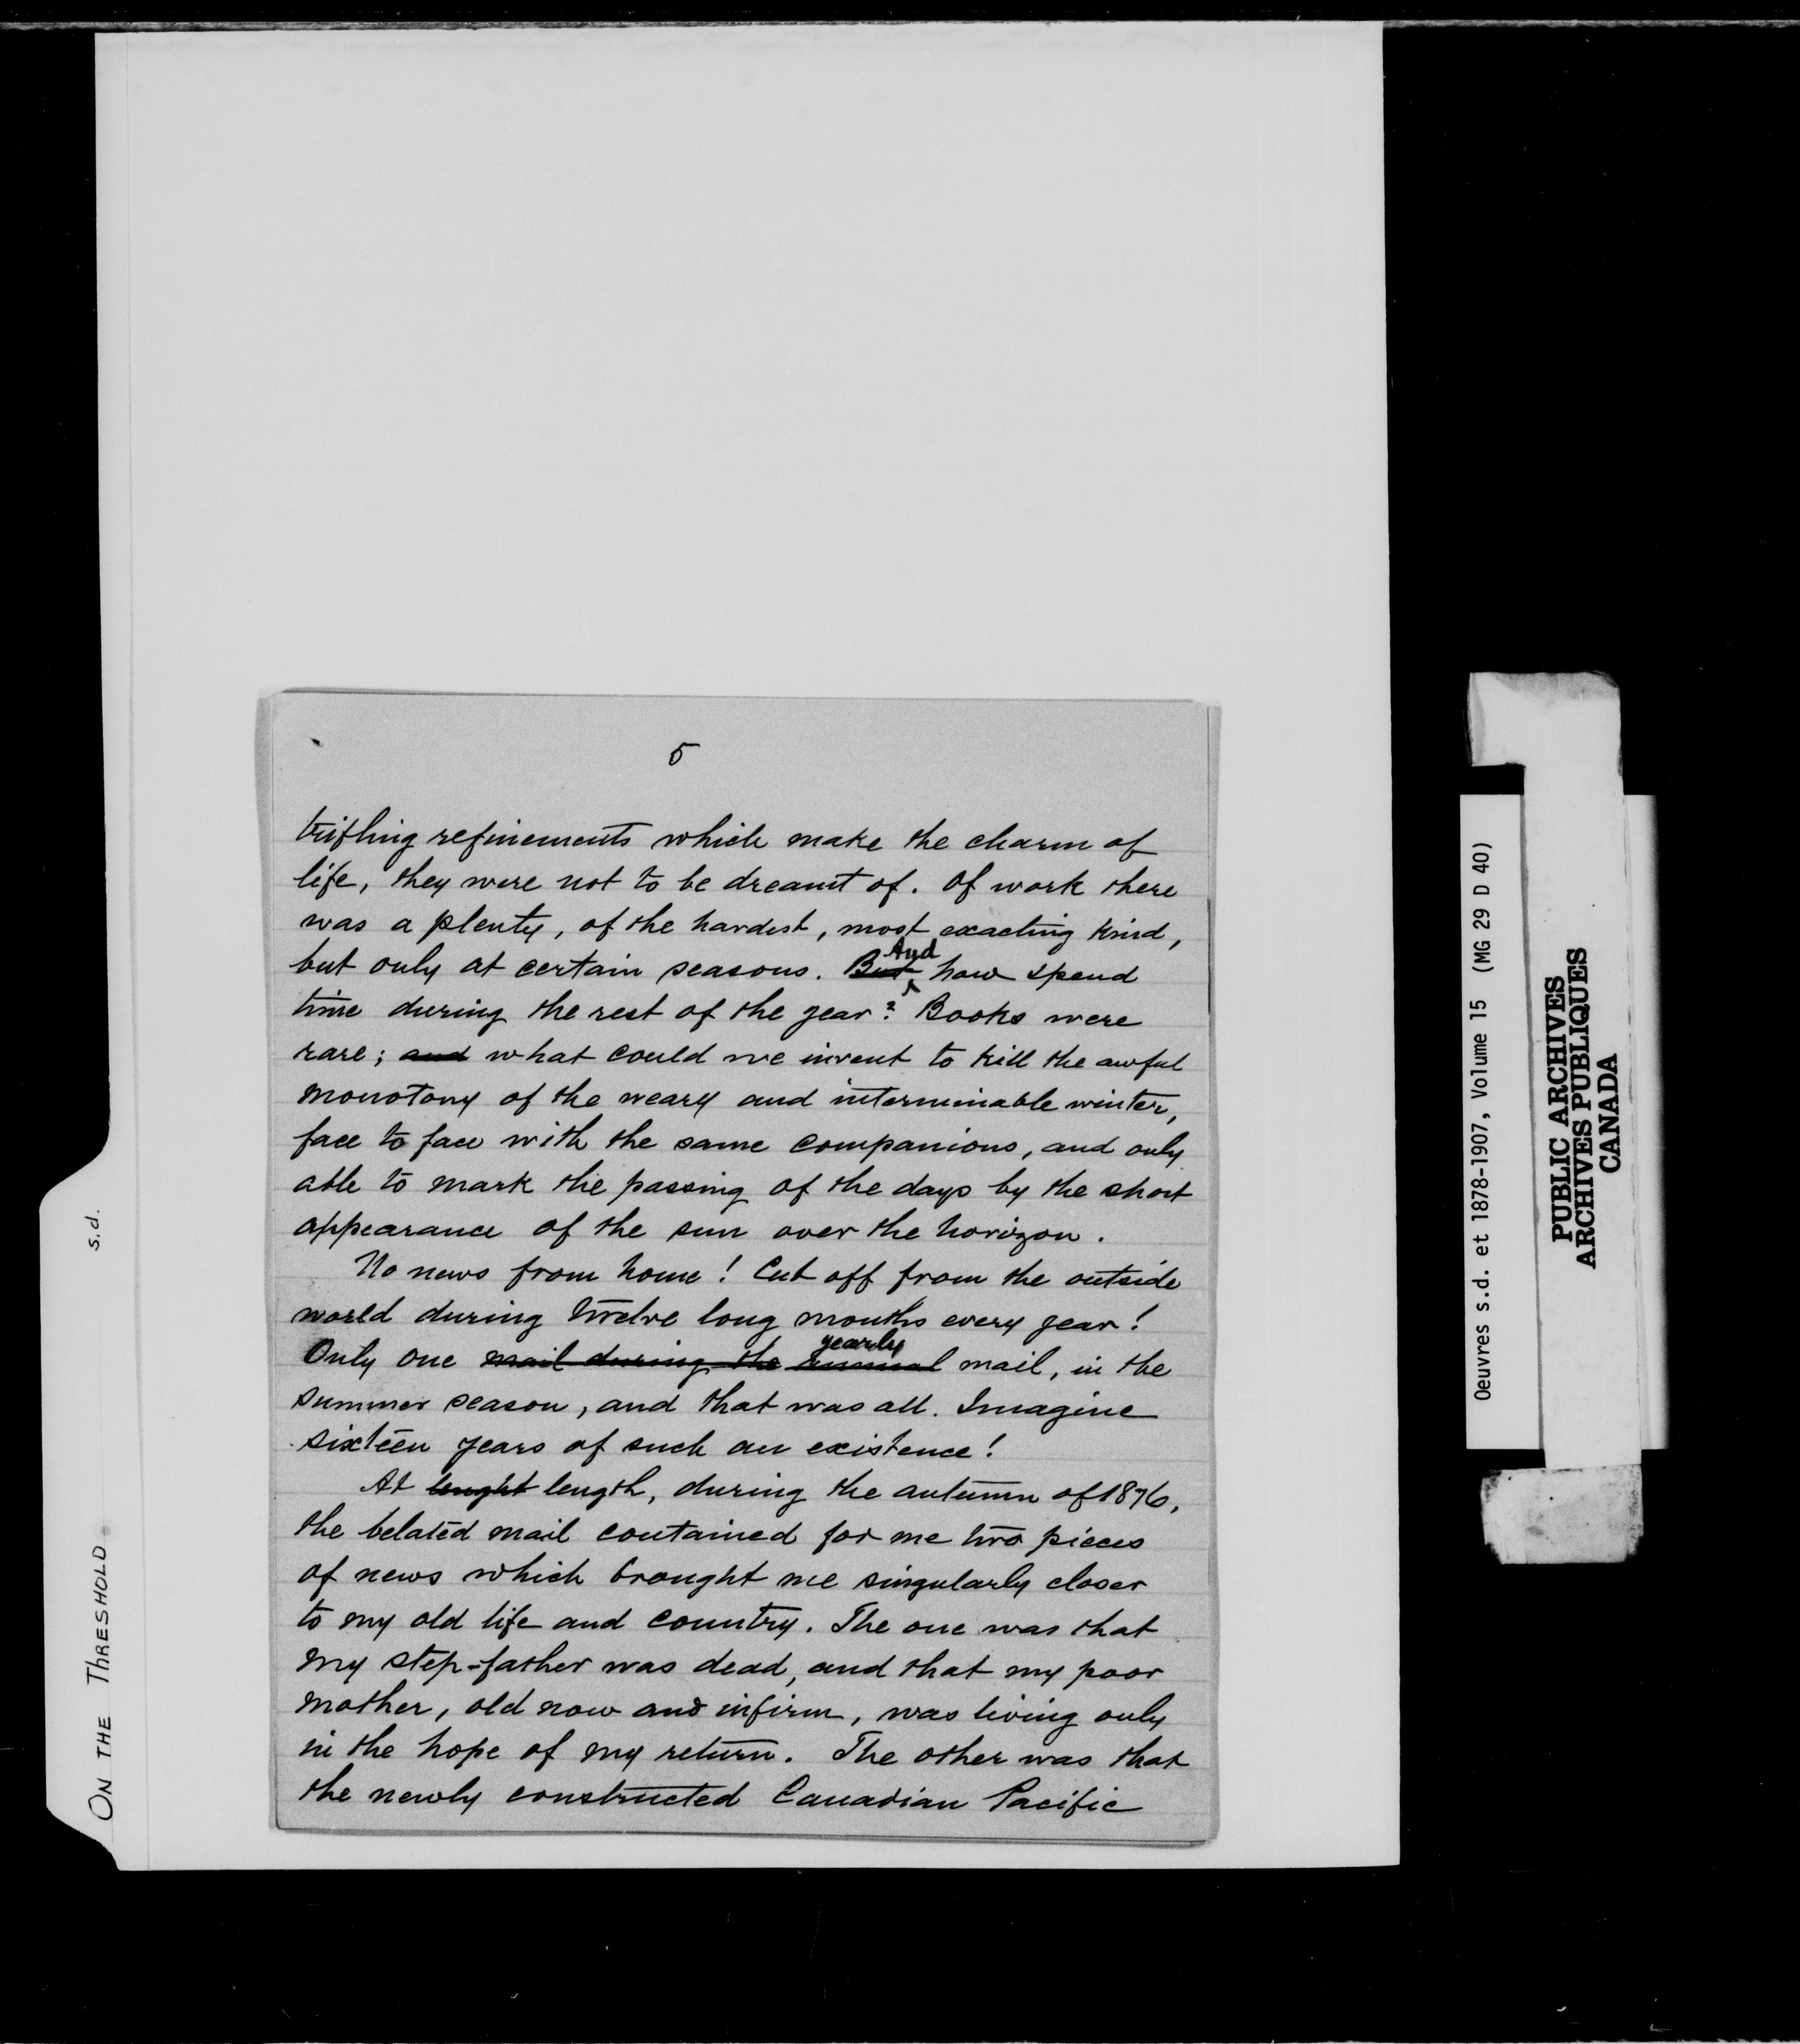 5
trifling refinements which make the charm of
life, they were not to be dreamt of. Of work there
was a plenty, of the hardest, most exacting kind,
but only at certain seasons. But And how spend
time during the rest of the year? Books were
rare; and what could we invent to kill the awful
monotony of the weary and interminable winter,
face to face with the same companions, and only
able to mark the passing of the days by the short
appearance of the sun over the horizon.
No news from home! Cut off from the outside
world during twelve long months every year!
Only one mail during the annual yearly mail, in the
summer season, and that was all. Imagine
sixteen years of such an existence!
At lenght length, during the autumn of 1876,
the belated mail contained for me two pieces
of news which brought me singularly closer
to my old life and country. The one was that
my step-father was dead, and that my poor
mother, old now and infirm, was living only
in the hope of my return. The other was that
the newly constructed Canadian Pacific
ON THE THRESHOLD
s.d.
Oeuvres s.d. et 1878-1907, Volume 15 (MG 29 D 40)
PUBLIC ARCHIVES
ARCHIVES PUBLIQUES
CANADA